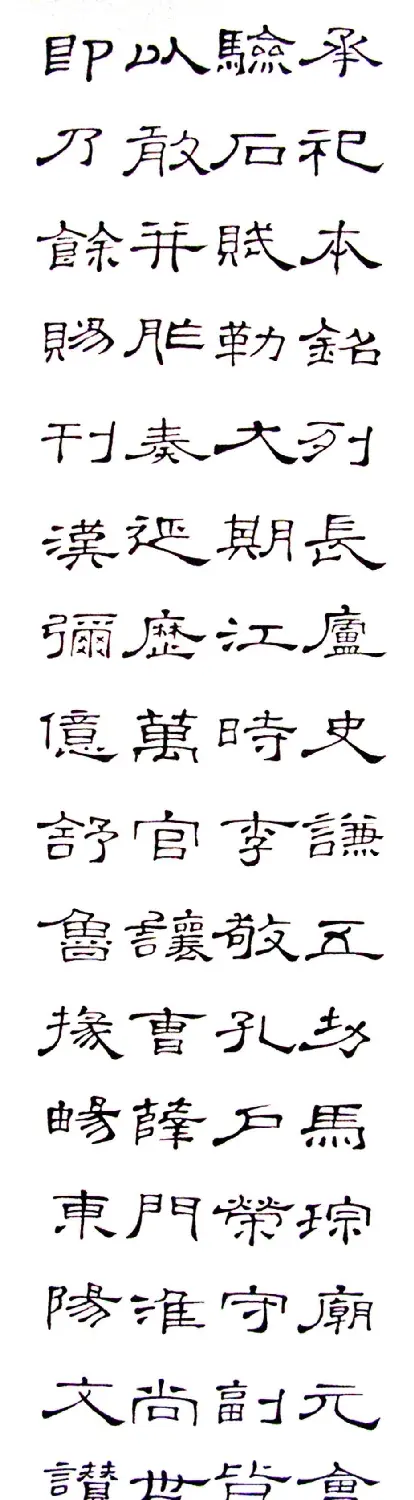 承祀本銘列長廬史謙五功馬琮廟元會
驗石賦勒大期江時李敬孔戶榮守副皆
以敢并胙奏延歷萬官讓曹薛門淮尚世
即乃餘賜刊漢彌億舒魯掾暢東陽文讚